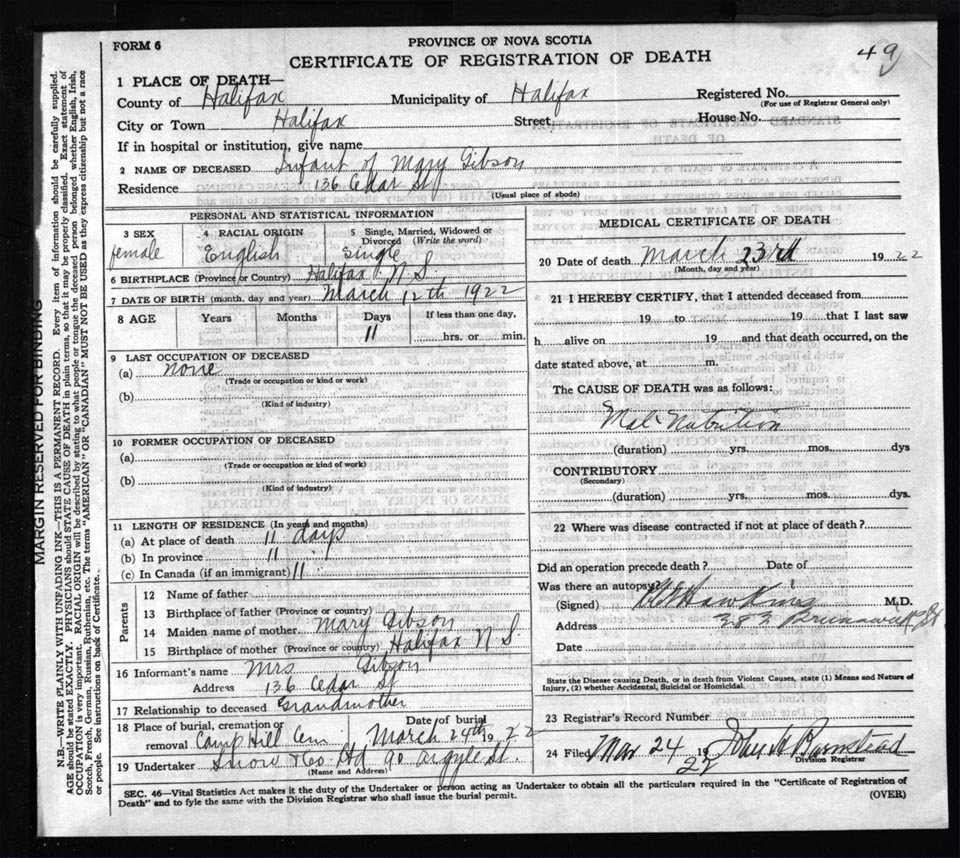 FORM 6
PROVINCE OF NOVA SCOTIA
CERTIFICATE OF REGISTRATION OF DEATH
49
1 PLACE OF DEATH—
County of Halifax Municipality of Halifax Registered No.
(For use of Registrar General only)
City or Town Halifax Street House No.
If in hospital or institution, give name
2 NAME OF DECEASED Infant of Mary Gibson
Residence 136 Cedar St
(Usual place of abode)
PERSONAL AND STATISTICAL INFORMATION
3 SEX 4 RACIAL ORIGIN 5 Single, Married, Widowed or Divorced (Write the word)
female English Single
6 BIRTHPLACE (Province or Country) Halifax N S
7 DATE OF BIRTH (month, day and year) March 12th 1922
8 AGE Years Months Days If less than one day,
11 hrs. or min.
9 LAST OCCUPATION OF DECEASED
(a) none
(Trade or occupation or kind or work)
(b)
(Kind of industry)
10 FORMER OCCUPATION OF DECEASED
(a)
(Trade or occupation or kind or work)
(b)
(Kind of industry)
11 LENGTH OF RESIDENCE (In years and months)
(a) At place of death 11 days
(b) In province 11
(c) In Canada (if an immigrant) 11
Parents
12 Name of father
13 Birthplace of father (Province or country)
14 Maiden name of mother Mary Gibson
15 Birthplace of mother (Province or country) Halifax N S
16 Informant's name Mrs Gibson
Address 136 Cedar St
17 Relationship to deceased Grandmother
18 Place of burial, cremation or removal Camp Hill Cem Date of burial March 24th 1922
19 Undertaker Snow & Co Ltd 90 Argyle St.
(Name and Address)
MEDICAL CERTIFICATE OF DEATH
20 Date of death March 23rd 1922
(Month, day and year)
21 I HEREBY CERTIFY, that I attended deceased from
19 to 19 that I last saw
h alive on 19 and that death occurred, on the
date stated above, at m.
The CAUSE OF DEATH was as follows:
Mal Nutrition
(duration) yrs. mos. dys
CONTRIBUTORY
(Secondary)
(duration) yrs. mos. dys.
22 Where was disease contracted if not at place of death?
Did an operation precede death? Date of
Was there an autopsy?
(Signed) Hawkins M.D.
Address Brunswick St
Date
State the Disease causing Death, or in death from Violent Causes, state (1) Means and Nature of
Injury, (2) whether Accidental, Suicidal or Homicidal.
23 Registrar's Record Number
24 Filed Mar 24 1922 John A Barnstead
Division Registrar
SEC. 46—Vital Statistics Act makes it the duty of the Undertaker or person acting as Undertaker to obtain all the particulars required in the "Certificate of Registration of
Death" and to fyle the same with the Division Registrar who shall issue the burial permit. (OVER)
MARGIN RESERVED FOR BINDING
N.B.—WRITE PLAINLY WITH UNFADING INK—THIS IS A PERMANENT RECORD. Every item of information should be carefully supplied.
AGE should be stated EXACTLY. PHYSICIANS should STATE CAUSE OF DEATH in plain terms, so that it may be properly classified. Exact statement of
OCCUPATION is very important. RACIAL ORIGIN will be described by stating to what people or tongue the deceased person belonged, whether English, Irish,
Scotch, French, German, Russian, Ruthenian, etc. The terms "AMERICAN" or "CANADIAN" MUST NOT BE USED as they express citizenship but not a race
or people. See instructions on back of Certificate.